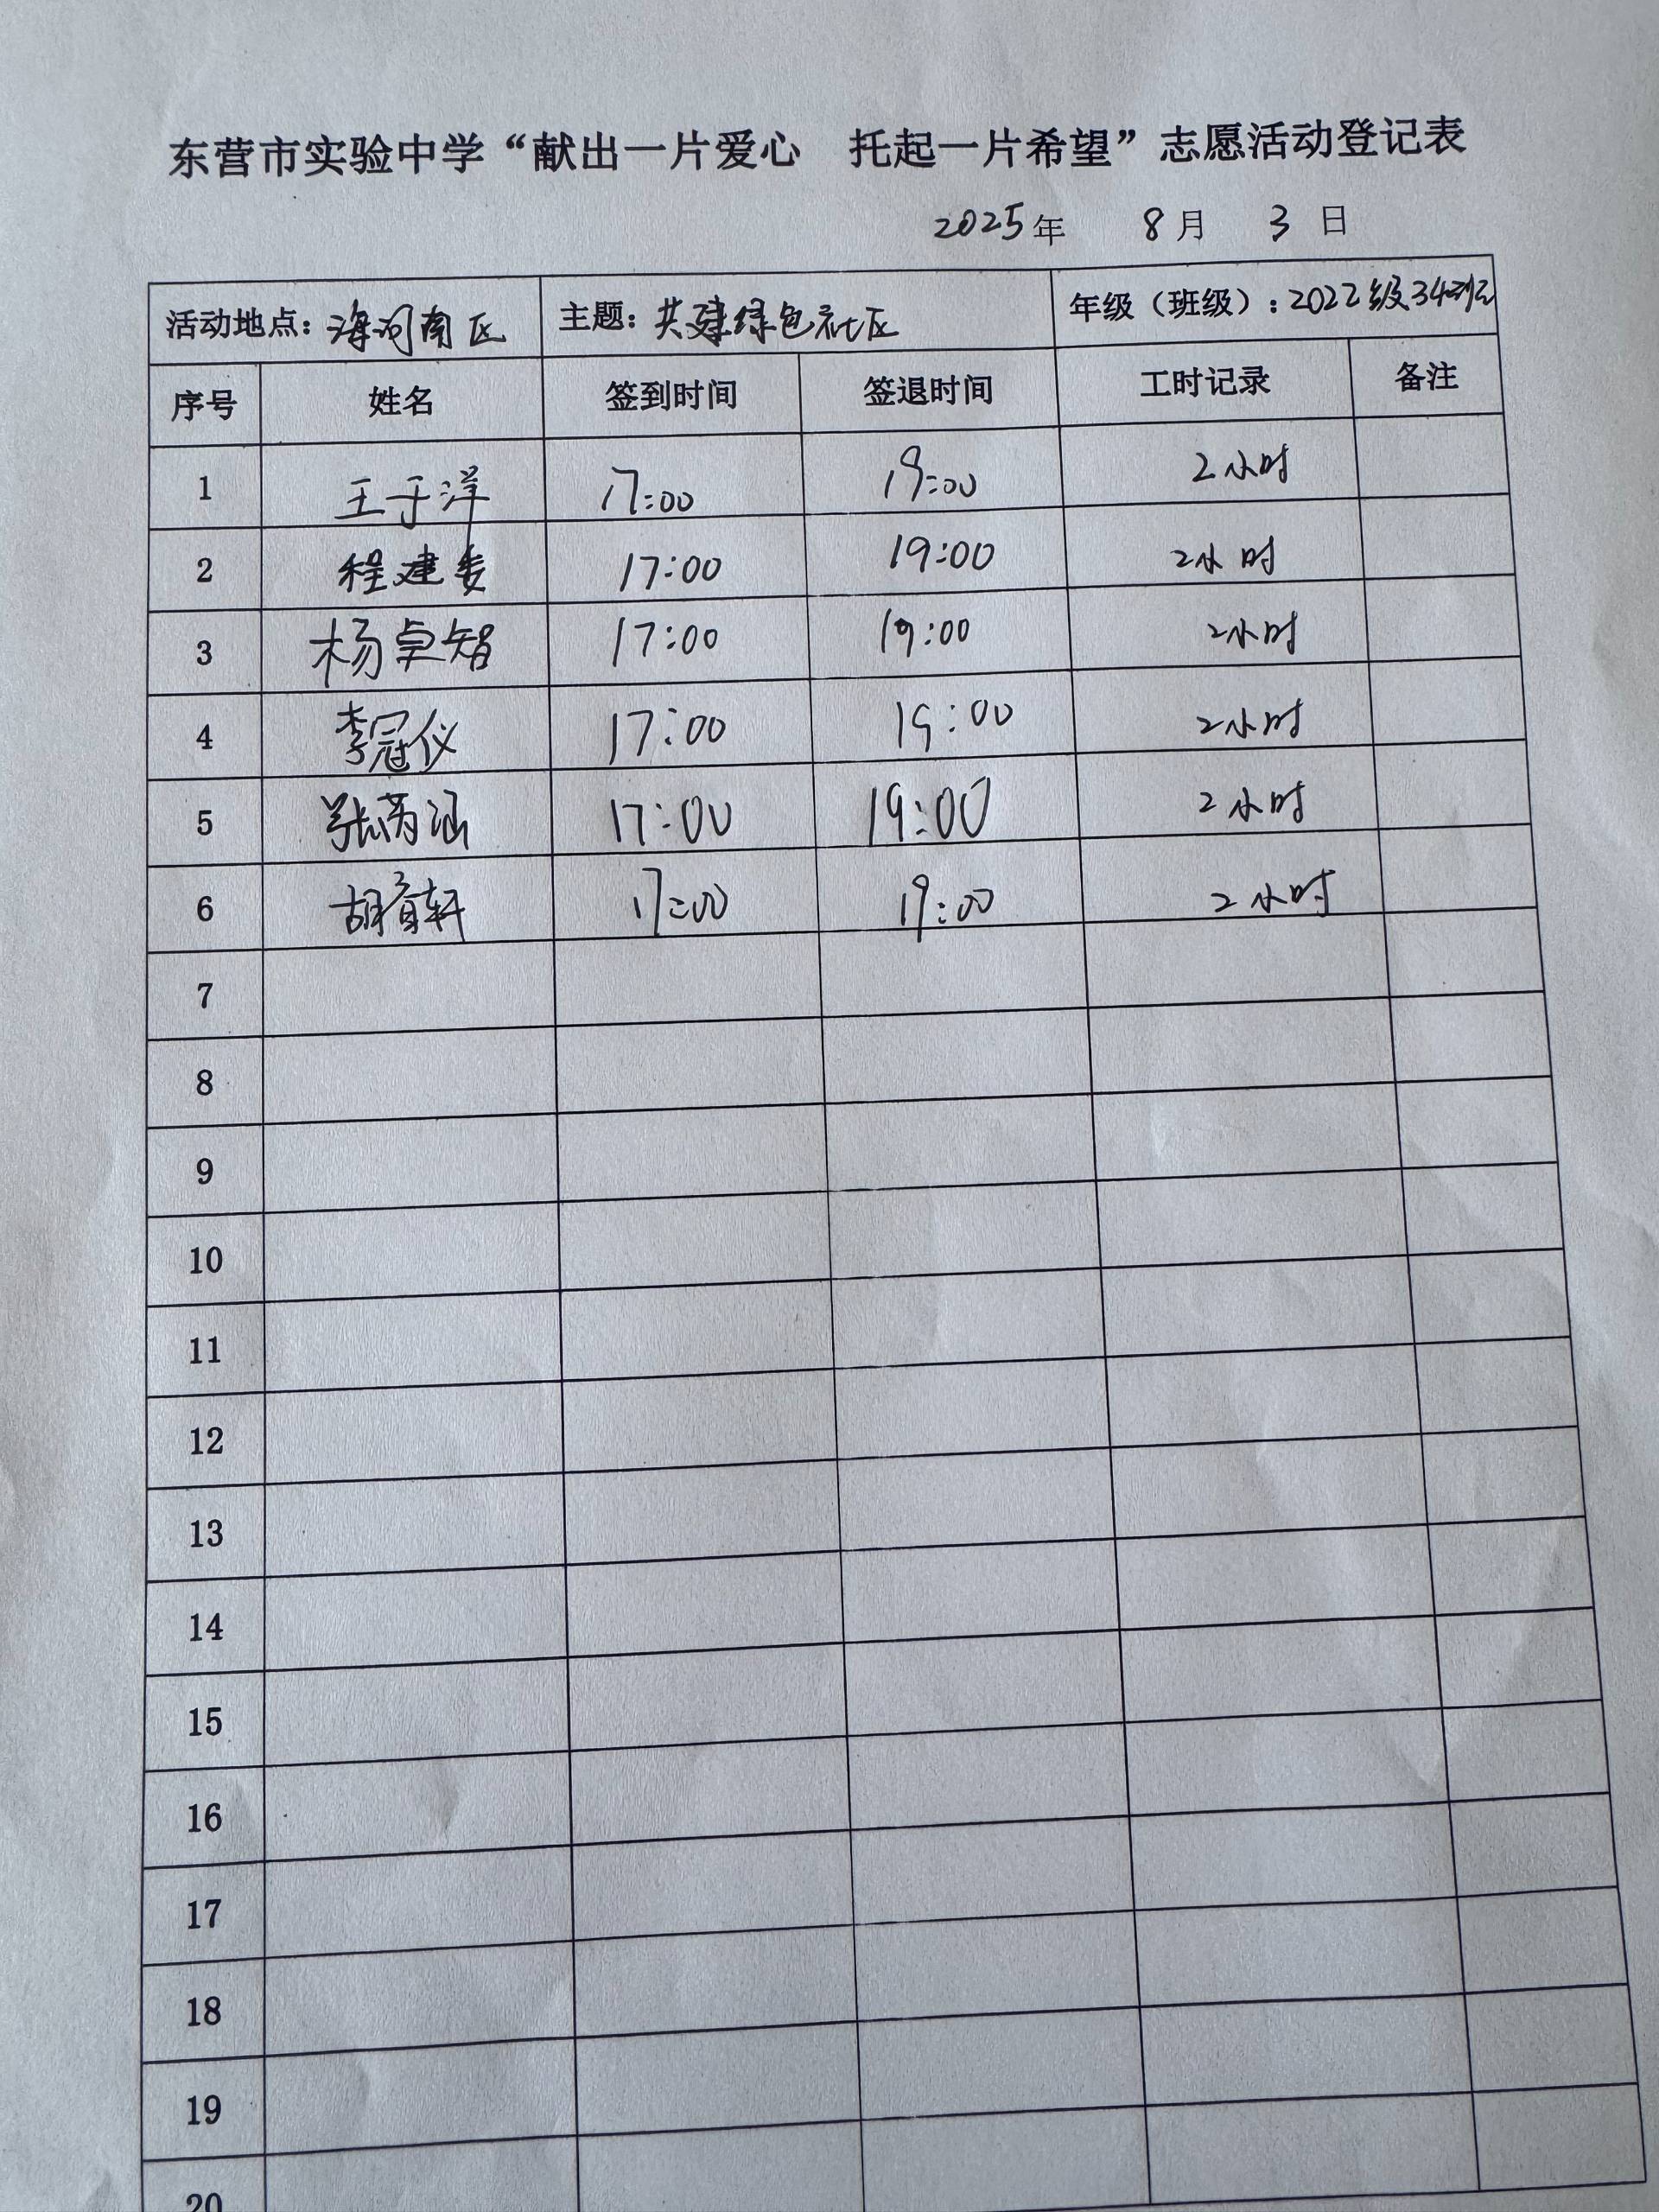 东营市实验中学“献出一片爱心 托起一片希望”志愿活动登记表
2025年 8月 3日
活动地点：海河南区 主题：共建绿色社区 年级（班级）：2022级34班
序号 姓名 签到时间 签退时间 工时记录 备注
1 王于洋 17:00 19:00 2小时
2 程建 17:00 19:00 2小时
3 杨卓智 17:00 19:00 2小时
4 李冠仪 17:00 19:00 2小时
5 张 涵 17:00 19:00 2小时
6 胡 轩 17:00 19:00 2小时
7
8
9
10
11
12
13
14
15
16
17
18
19
20